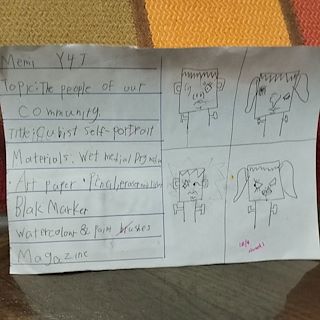 Memi Y4J
Topic: The people of our
community
Title: Cubist Self-portrait
Materials: Wet media/Dry media
• Art paper • Pencil, eraser
Blak Marker
watercolour & paint brushes
Magazine